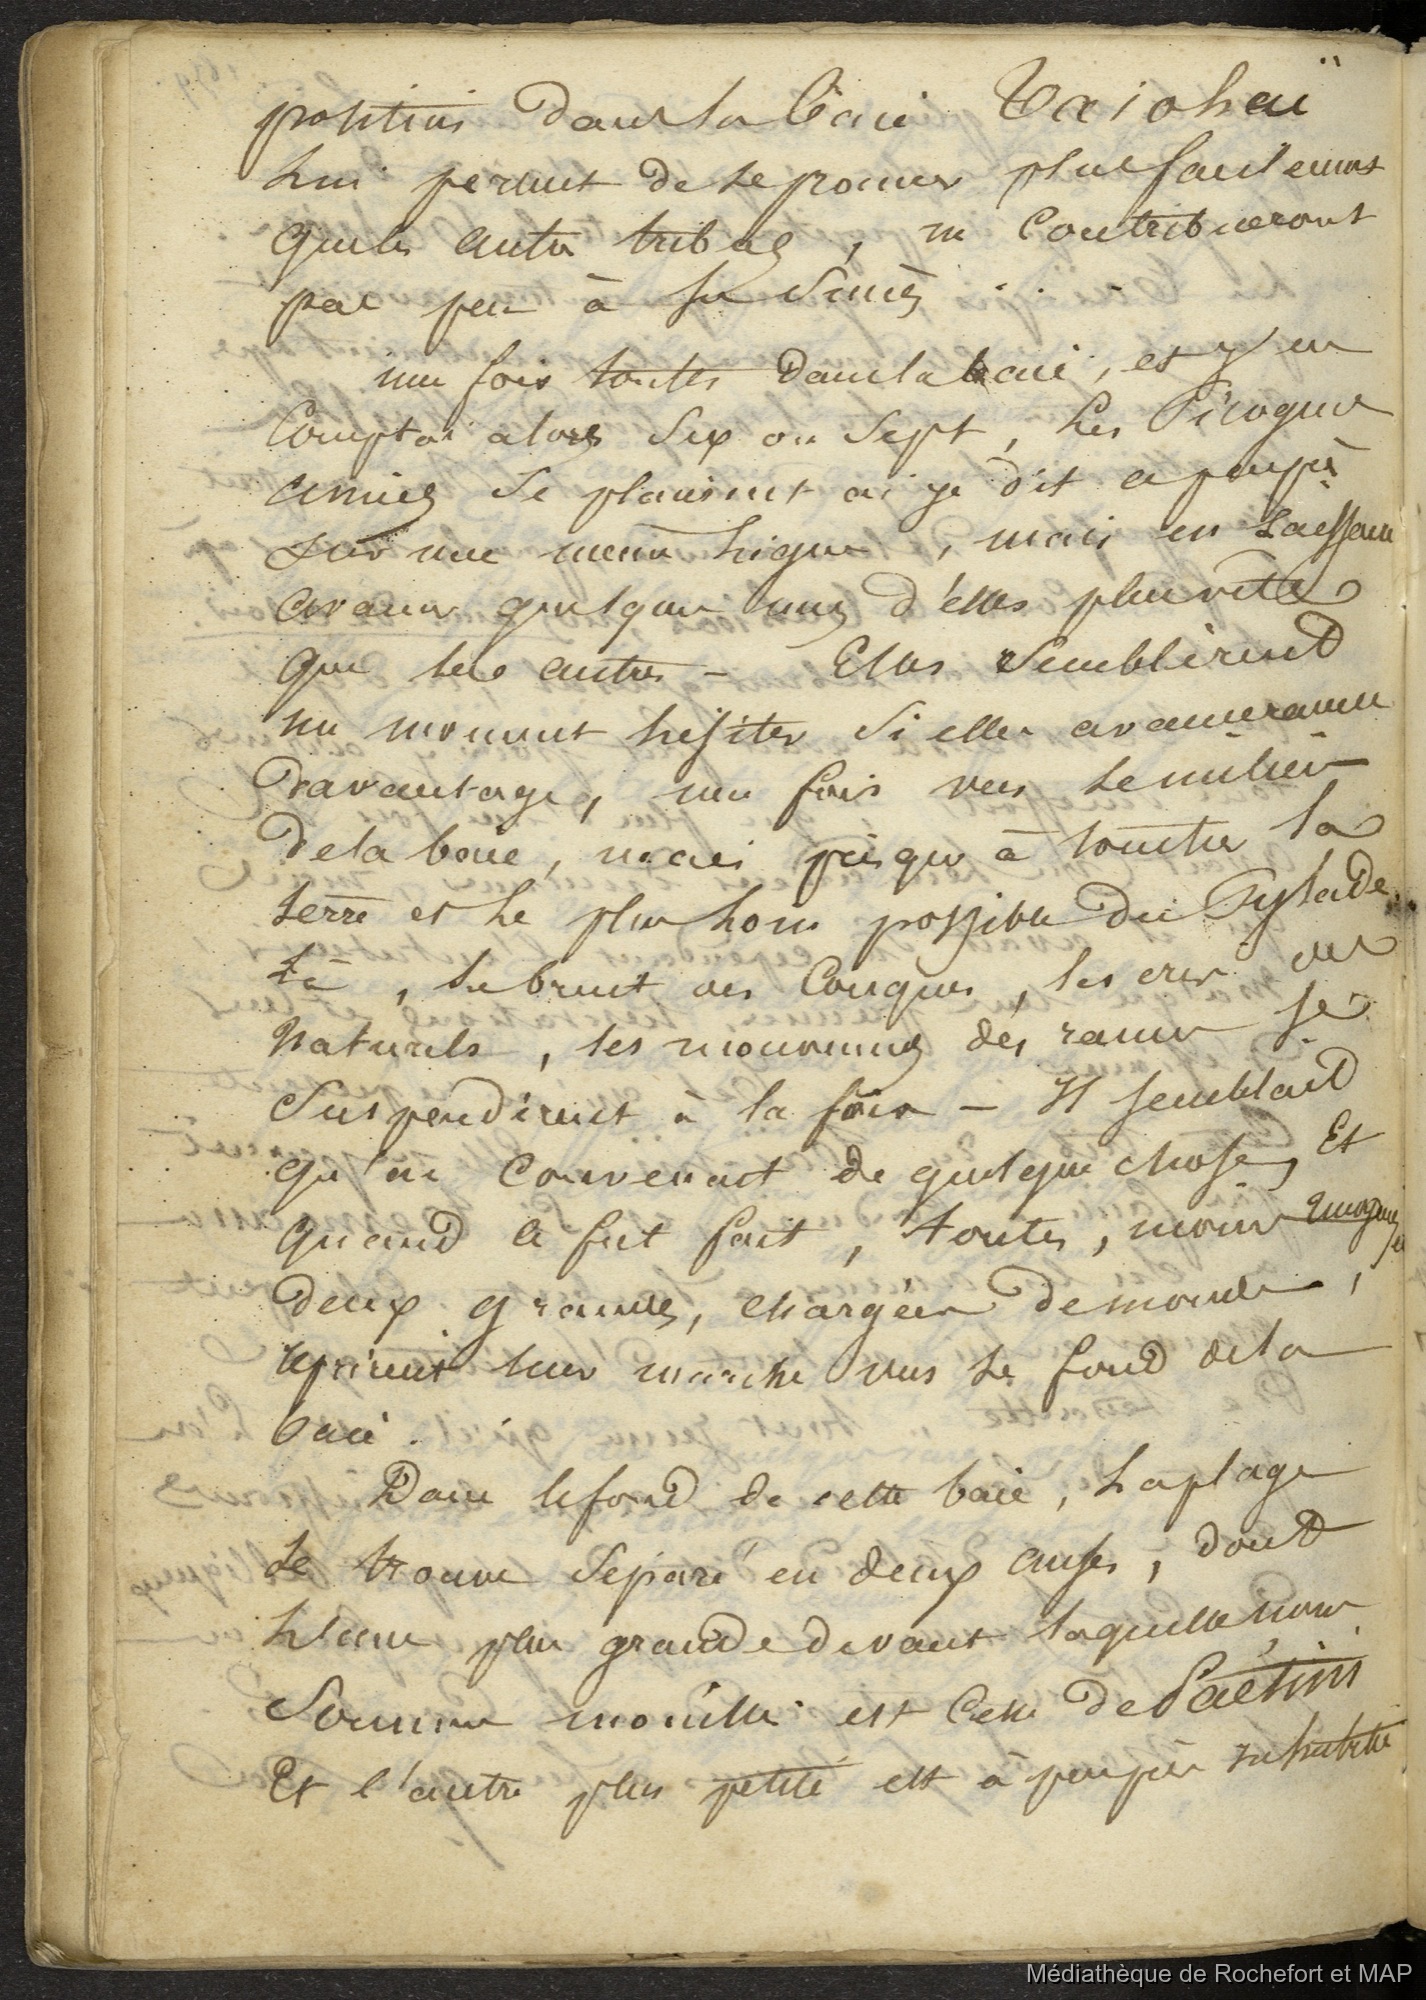 position dans la baie Taiohaï
lui permet de se procurer plus facilement
que les autres tribus, ne contribueront
pas peu à su succès . . .
une fois toutes dans la baie, et j'en
comptai alors six ou sept, les Pirogues
amies se placèrent ai je dit a peu près
sur une même ligne, mais en laissant
avancer quelques unes d'elles plus vite
que les autres - Elles semblèrent
un moment hésiter si elles avanceraient
davantage, une fois vers le milieu
de la baie, mais presque à toucher la
terre et le plus loin possible du Pylade.
là, le bruit des Conques, les cris des
naturels, les mouvemens des rames se
suspendirent à la fois - Il semblait
qu'on convenait de quelque chose, Et
quand ce fut fait, toutes, moins
deux grandes, chargées de monde,
reprirent leur marche vers le fond de la
baie.
Dans le fond de cette baie, la plage
se trouve séparé en deux anses, dont
l'une plus grande devant laquelle nous
sommes mouillés est celle de
Et l'autre plus petite est à peu près inhabitée
Médiathèque de Rochefort et MAP